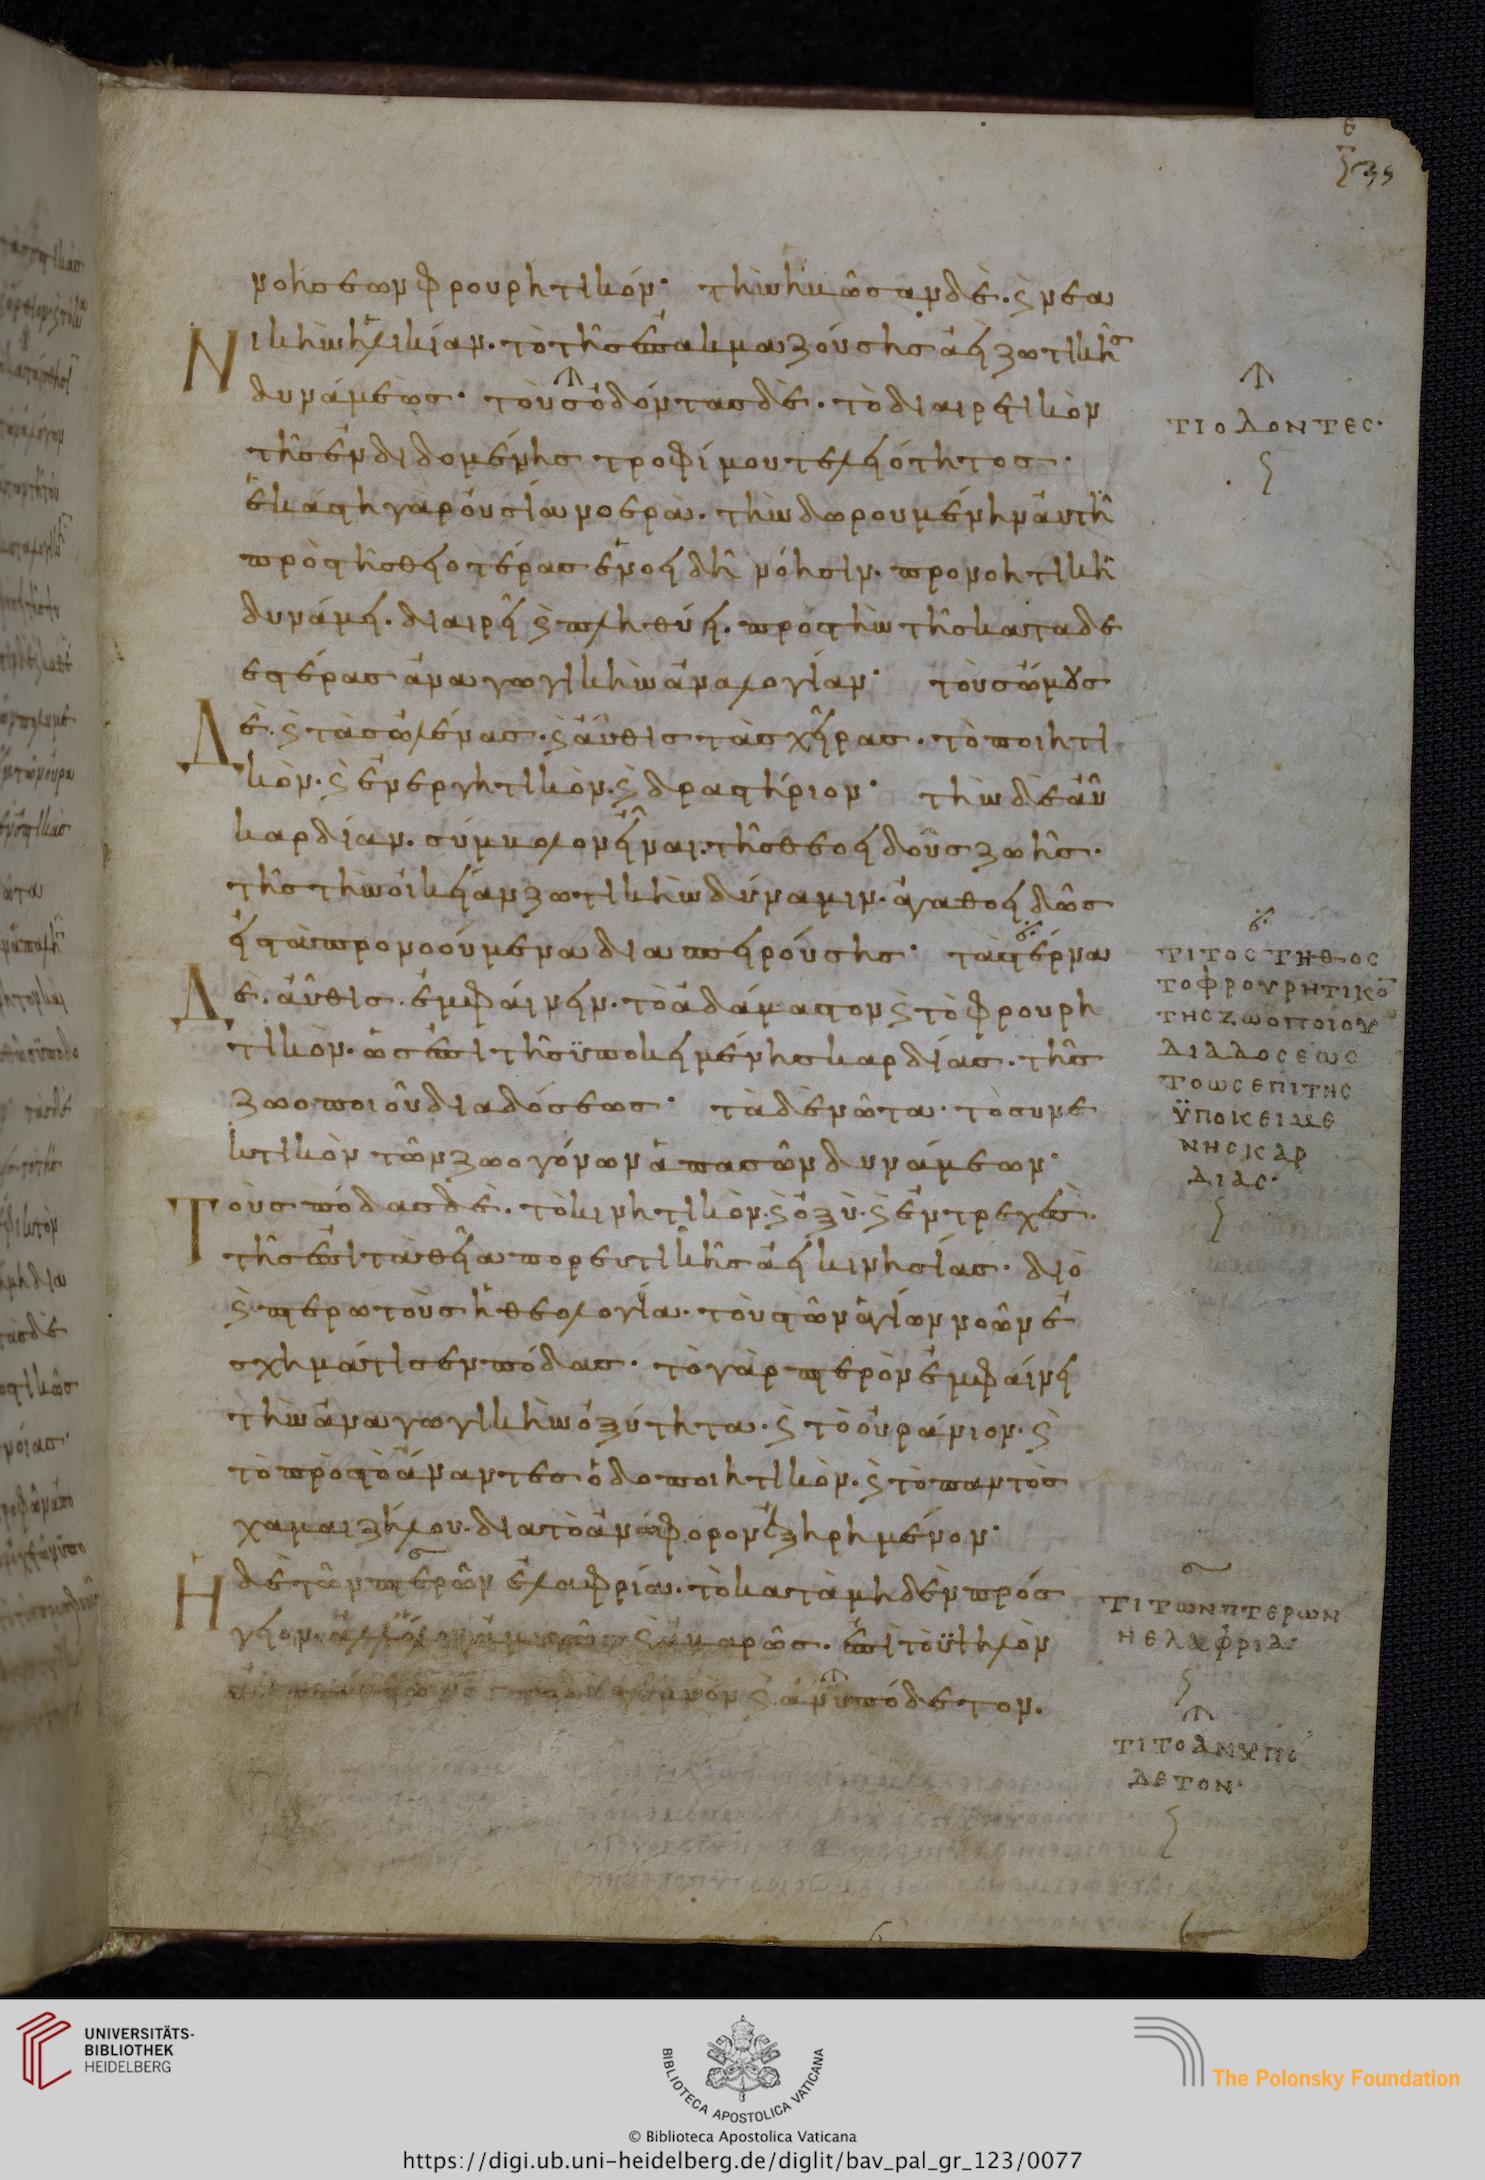 ε
ϛ 39
νοήσεων φρουρητικόν· τὴν ἡβῶσαν δὲ. ϛ νεα
Νικὴν ἡλικίαν. τὸ τῆς ἐπακμαζούσης ἀεὶ ζωτικῆς
δυνάμεως· τοὺς ὀδόντας δὲ. τὸ διαιρετικὸν
τῆς ἐνδιδομένης τροφίμου τελειότητος·
ἑκάστη γὰρ οὐσία νοερὰ. τὴν δωρουμένην αὐτῆ
πρὸς τῆς θειοτέρας ἑνοειδῆ νόησιν. προνοητικῆ
δυνάμει. διαιρεῖ ϛ πληθύει. πρὸς τὴν τῆς καταδε
εστέρας ἀναγωγικὴν ἀναλογίαν· τοὺς ὤμους
Δὲ. ϛ τὰς ὠλένας. ϛ αὖθις τὰς χεῖρας. τὸ ποιητι
κὸν. ϛ ἐνεργητικὸν. ϛ δραστήριον· τὴν δὲ αὖ
καρδίαν. σύμβολον εἶναι. τῆς θεοειδοῦς ζωῆς.
τῆς τὴν οἰκείαν ζωτικὴν δύναμιν. ἀγαθοειδῶς
εἰς τὰ προνοούμενα διασπειρούσης· τὰ στέρνα
Δὲ. αὖθις. ἐμφαίνειν. τὸ ἀδάμαστον ϛ τὸ φρουρη
τικὸν. ὡς ἐπὶ τῆς ϋποκειμένης καρδίας. τῆς
ζωοποιοῦ διαδόσεως· τὰ δὲ νῶτα. τὸ συνε
κτικὸν τῶν ζωογόνων ἁπασῶν δυνάμεων·
Τοὺς πόδας δὲ. τὸ κινητικὸν. ϛ ὀξὺ. ϛ ἐντρεχὲς.
τῆς ἐπὶ τὰ θεῖα πορευτικῆς ἀεικινησίας. διὸ
ϛ πτερωτοὺς ἡ θεολογία. τοὺς τῶν ἁγίων νοῶν ἐ
σχημάτισεν πόδας· τὸ γὰρ πτερὸν ἐμφαίνει
τὴν ἀναγωγικὴν ὀξύτητα. ϛ τὸ οὐράνιον. ϛ
τὸ πρὸς τὸ ἄναντες ὁδοποιητικὸν. ϛ τὸ παντὸς
χαμαιζήλου. διὰ τὸ ἀνώφορον ἐξηρημένον·
Ἡ δὲ τῶν πτερῶν ἐλαφρία. τὸ κατὰ μηδὲν πρόσ
γειον. ἀλλ' ὅλον ἀμιγῶς ϛ ἀβαρῶς. ἐπὶ τὸ ϋψηλὸν
γυμνὸν ϛ ἀνυπόδετον.
ΤΙ ΟΔΟΝΤΕΣ·
ΤΙ ΤΟ ΣΤΗΘΟΣ
ΤΟ ΦΡΟΥΡΗΤΙΚΟ
ΤΗΣ ΖΩΟΠΟΙΟΥ
ΔΙΑΔΟΣΕΩΣ
ΤΟ ΩΣ ΕΠΙ ΤΗΣ
ΫΠΟΚΕΙΜΕ
ΝΗΣ ΚΑΡ
ΔΙΑΣ·
ΤΙ ΤΩΝ ΠΤΕΡΩΝ
Η ΕΛΑΦΡΙΑ·
ΤΙ ΤΟ ΑΝΥΠΟ
ΔΕΤΟΝ·
UNIVERSITÄTS-
BIBLIOTHEK
HEIDELBERG
BIBLIOTECA APOSTOLICA VATICANA
The Polonsky Foundation
© Biblioteca Apostolica Vaticana
https://digi.ub.uni-heidelberg.de/diglit/bav_pal_gr_123/0077